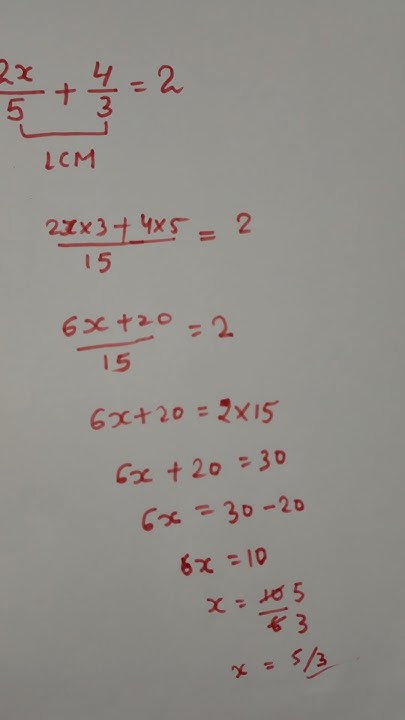 2x/5 + 4/3 = 2
LCM
2x×3+4×5/15 = 2
6x+20/15 = 2
6x+20 = 2×15
6x + 20 = 30
6x = 30-20
6x = 10
x = 10 5/6 3
x = 5/3